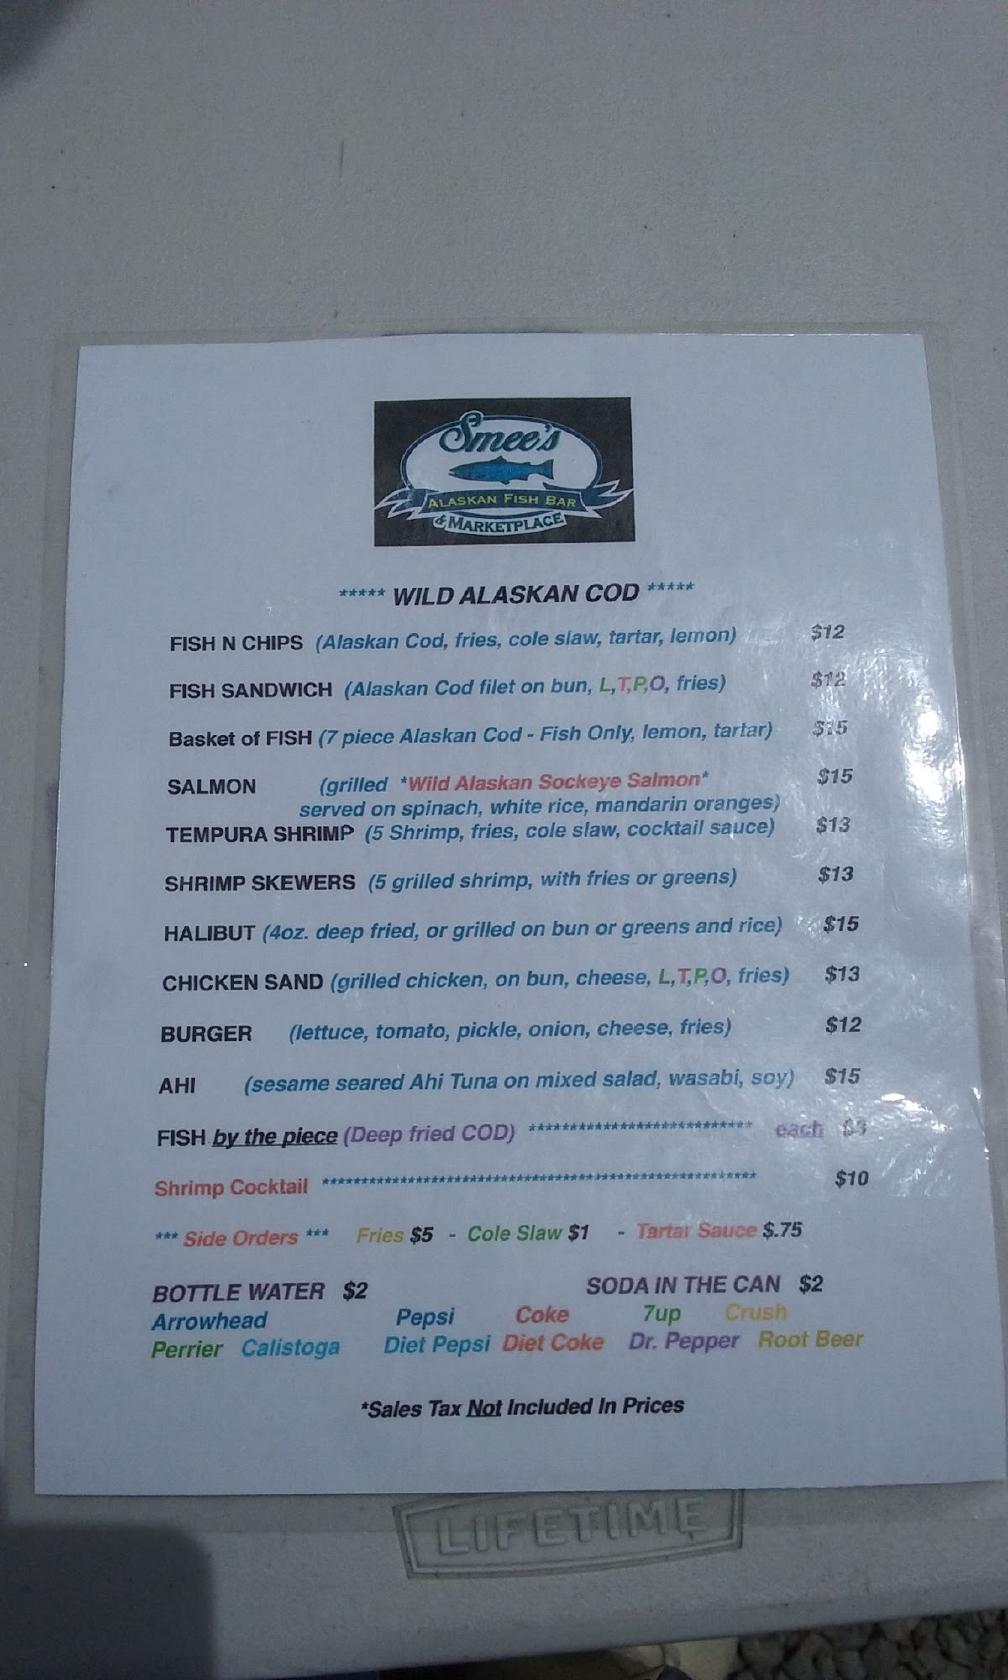 Smee's
ALASKAN FISH BAR
& MARKETPLACE
***** WILD ALASKAN COD *****
FISH N CHIPS (Alaskan Cod, fries, cole slaw, tartar, lemon) $12
FISH SANDWICH (Alaskan Cod filet on bun, L,T,P,O, fries) $12
Basket of FISH (7 piece Alaskan Cod - Fish Only, lemon, tartar) $15
SALMON (grilled *Wild Alaskan Sockeye Salmon* $15
served on spinach, white rice, mandarin oranges)
TEMPURA SHRIMP (5 Shrimp, fries, cole slaw, cocktail sauce) $13
SHRIMP SKEWERS (5 grilled shrimp, with fries or greens) $13
HALIBUT (4oz. deep fried, or grilled on bun or greens and rice) $15
CHICKEN SAND (grilled chicken, on bun, cheese, L,T,P,O, fries) $13
BURGER (lettuce, tomato, pickle, onion, cheese, fries) $12
AHI (sesame seared Ahi Tuna on mixed salad, wasabi, soy) $15
FISH by the piece (Deep fried COD) **************************** each $3
Shrimp Cocktail ******************************************************** $10
*** Side Orders *** Fries $5 - Cole Slaw $1 - Tartar Sauce $.75
BOTTLE WATER $2 SODA IN THE CAN $2
Arrowhead Pepsi Coke 7up Crush
Perrier Calistoga Diet Pepsi Diet Coke Dr. Pepper Root Beer
*Sales Tax Not Included In Prices
LIFETIME